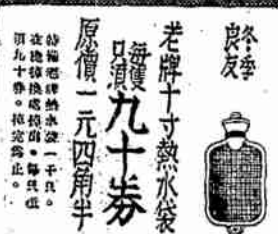 冬季
良友
老牌十寸熱水袋
每隻
只須
九十券
原價一元四角半
特備老牌熱水袋一千只。
在應掉換處掉出。每只僅
須九十券。掉完為止。